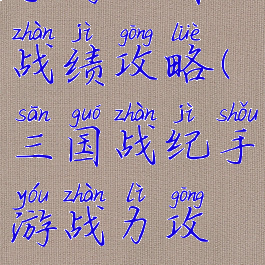 zhàn jì gōng lüè
战绩攻略(
sān guó zhàn jì shǒu
三国战纪手
yóu zhàn lì gōng
游战力攻